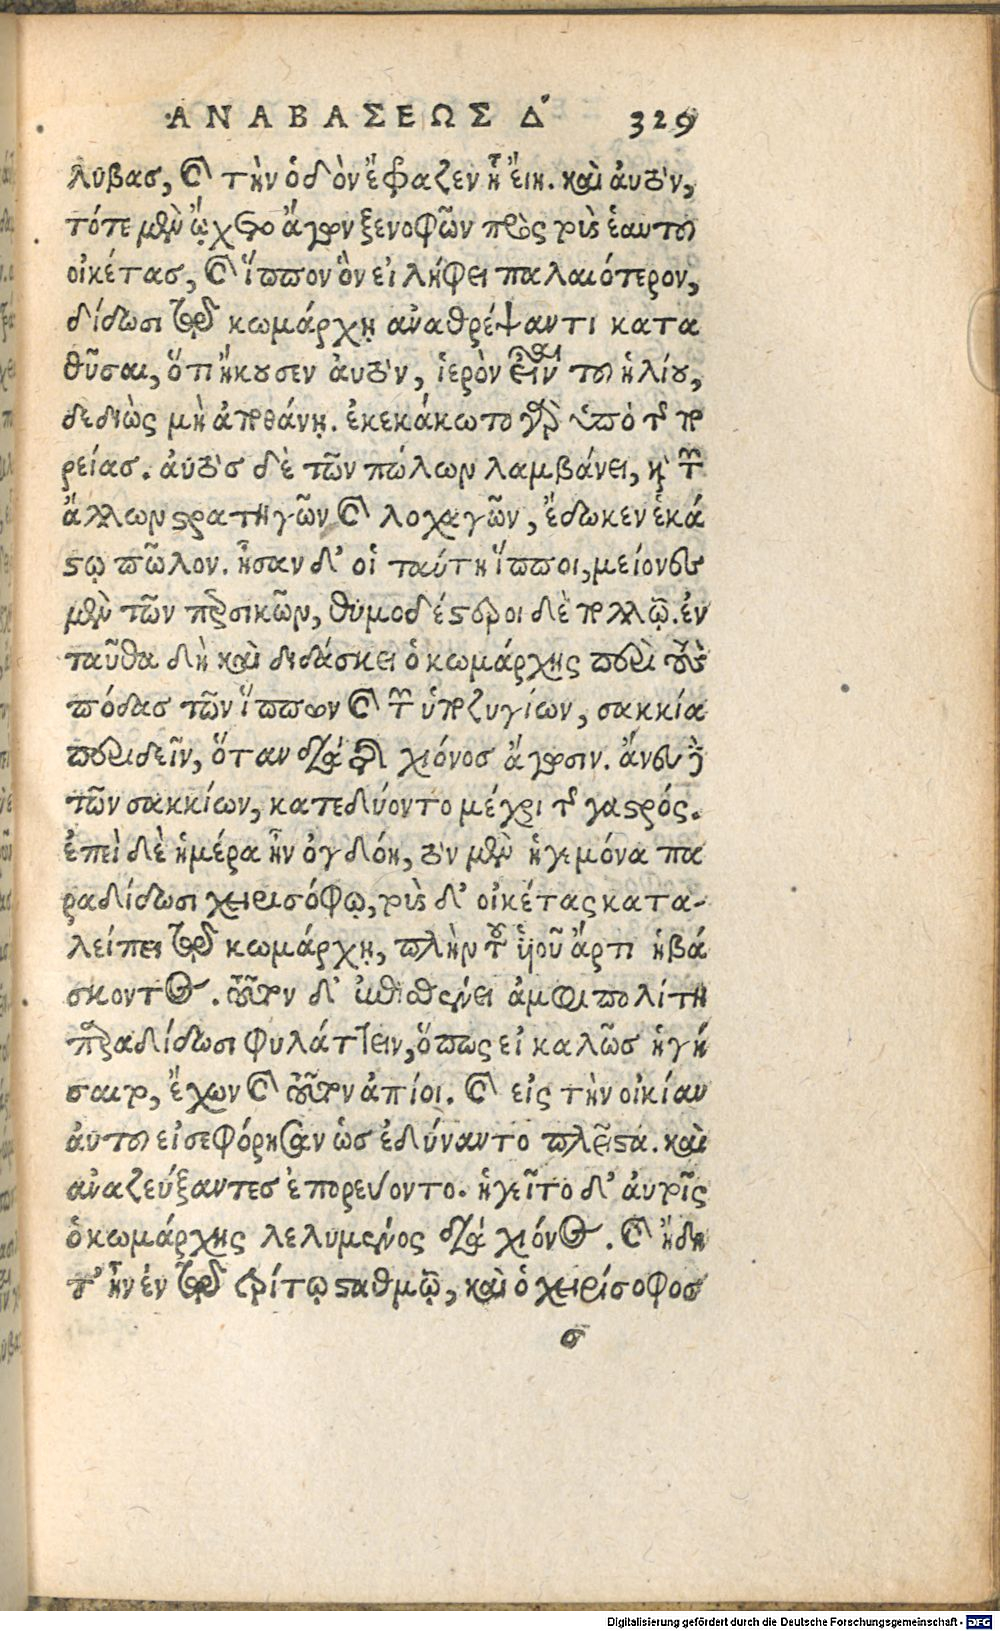 ΑΝΑΒΑΣΕΩΣ Δ΄ 329
λυβασ, καὶ τὴν ὁδὸν ἔφραζεν ᾗ εἴη. καὶ ἀυτὸν,
τότε μὲν ᾤχετο ἄγων ξενοφῶν πρὸς τοὺς ἑαυτοῦ
οἰκέτασ, καὶ ἵππον ὃν εἰλήφει παλαιότερον,
δίδωσι τῷ κωμάρχῃ ἀναθρέψαντι κατα
θῦσαι, ὅτι ἤκουσεν ἀυτὸν, ἱερὸν εἶναι τοῦ ἡλίου,
δεδιὼς μὴ ἀποθάνῃ. ἐκεκάκωτο γὰρ ὑπὸ τῆς πο
ρείασ. ἀυτὸσ δὲ τῶν πώλων λαμβάνει, καὶ τῶν
ἄλλων στρατηγῶν καὶ λοχαγῶν, ἔδωκεν ἑκά
στῳ πῶλον. ἦσαν δ' οἱ ταύτῃ ἵπποι, μείονες
μὲν τῶν περσικῶν, θυμοδέστεροι δὲ πολλῷ. ἐν
ταῦθα δὴ καὶ διδάσκει ὁ κωμάρχης περὶ τοὺς
πόδασ τῶν ἵππων καὶ τῶν ὑποζυγίων, σακκία
περιδεῖν, ὅταν διὰ τῆς χιόνοσ ἄγωσιν. ἄνευ γὰρ
τῶν σακκίων, κατεδύοντο μέχρι τῆς γαστρός.
ἐπεὶ δὲ ἡμέρα ἦν ὀγδόη, τὸν μὲν ἡγεμόνα πα
ραδίδωσι χειρισόφῳ, τοὺς δ' οἰκέτας κατα-
λείπει τῷ κωμάρχῃ, πλὴν τοῦ υἱοῦ ἄρτι ἡβά
σκοντος. τοῦτον δ' ἐπισθένει ἀμφιπολίτῃ
παραδίδωσι φυλάττειν, ὅπως εἰ καλῶσ ἡγή
σαιτο, ἔχων καὶ τοῦτον ἀπίοι. καὶ εἰς τὴν οἰκίαν
ἀυτοῦ εἰσεφόρησαν ὡσ ἐδύναντο πλεῖστα. καὶ
ἀναζεύξαντεσ ἐπορεύοντο. ἡγεῖτο δ' ἀυτοῖς
ὁ κωμάρχης λελυμένος διὰ χιόνος. καὶ ἤδη
τ' ἦν ἐν τῷ τρίτῳ σταθμῷ, καὶ ὁ χειρίσοφοσ
σ
Digitalisierung gefördert durch die Deutsche Forschungsgemeinschaft - DFG